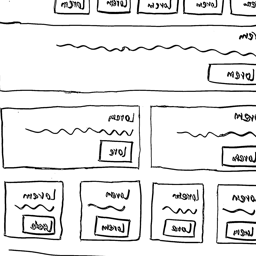 Lorem Lorem Lorem Lorem
Lorem
Lorem
Lorem Lorem
Lorem Lore
Lorem Lorem Lorem Lorem
Lorem Lore Lorem